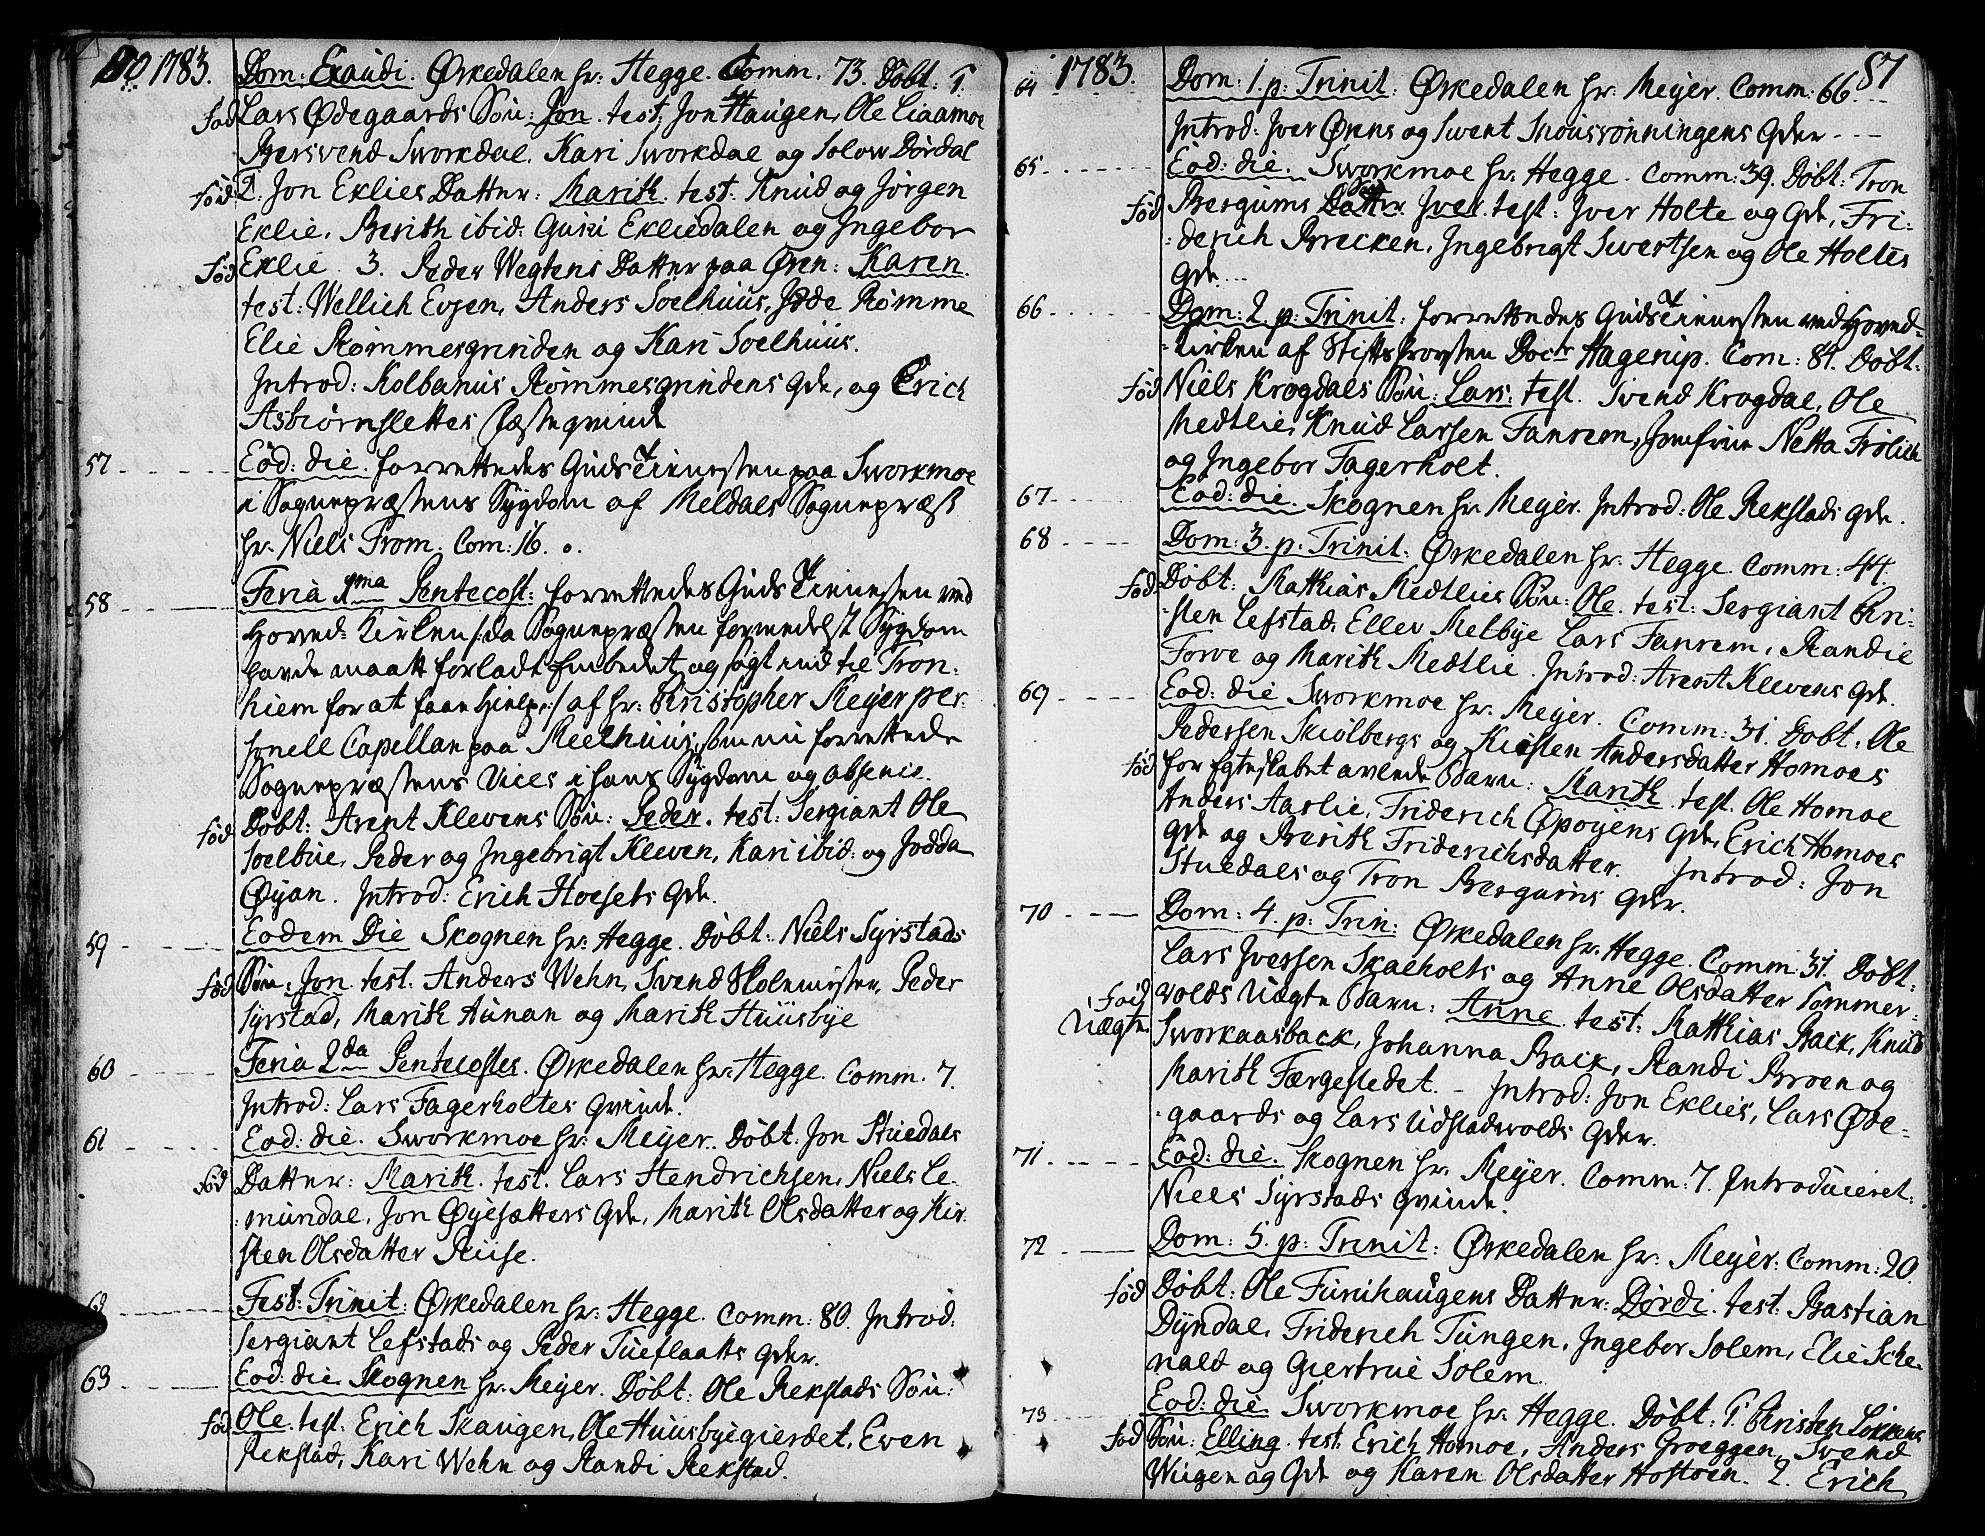 1783.
Dom: Exaudi. Ørkedalen hr: Hegge. Comm. 73. Døbt. 1.
fød Lars Ødegaards Søn: Jon. test: Jon Haugen, Ole Liaamoe
Bersvend Sworkdal, Kari Sworkdal og Solow Dørdal
fød 2. Jon Eklies Datter: Marith. test. Knud og Jørgen
Eklie, Berith ibid: Guru Ekliedalen og Ingebor
fød Eklie. 3. Peder Wegtens Datter paa Øren: Karen.
test: Wellich Evjen, Anders Soelhuus, Rømme
Elie Rømmesgrinden og Kari Soelhuus.
Introd: Kolbanus Rømmesgrindens Qde, og Erich
Asbiørnslettes fæsteqvinde
57 Eod: die. forrettedes Gudstienesten paa Sworkmoe
i Sognepræstens Sygdom af Meldals Sognepræst
hr. Niels From. Com: 16.
58 Feria 1ma Pentecost: forrettedes Guds Tienesten ved
Hoved-Kirken /: da Sognepræsten formedelst Sygdom
havde maatt forladt Embedet og søgt ind til Tron-
hiem for at faae hielp :/ af hr: Christopher Meyer per-
sonell Capellan paa Meelhuus, som nu forrettede
Sognepræstens Vices i hans Sygdom og absence.
fød Døbt: Arent Klevens Søn: Peder. test: Sergiant Ole
Soelbue, Peder og Ingebrigt Kleven, Kari ibid: og Jodda
Øyan. Introd: Erich Hoesets Qde.
59 Eodem Die Skognen hr: Hegge. Døbt: Niels Syrstads
fød Søn: Jon test. Anders Wehn, Svend Skolemester, Peder
Syrstad, Marith Aunan og Marith Huusbye
60 Feria 2da Pentecostes. Ørkedalen hr: Hegge. Comm. 7.
Introd: Lars Fagerholtes Qvinde.
61 Eod: die. Sworkmoe hr: Meyer. Døbt: Jon Stuedals
fød Datter: Marith. test. Lars Hendrichsen, Niels Le-
mundal, Jon Øyesætters Qde, Marith Olsdatter og Kir-
sten Olsdatter Ruse.
62 Fest: Trinit: Ørkedalen hr: Hegge. Comm: 80. Introd:
Sergiant Lefstads og Peder Tueflaatts Qder.
63 Eod: die Skognen hr. Meyer. Døbt: Ole Rekstads Søn:
fød Ole. test: Erich Skaugen, Ole Huusbyegierdet, Even
Rekstad, Kari Wehn og Randi Rekstad.
1783. 87
64 Dom: 1. p: Trinit: Ørkedalen hr. Meyer. Comm: 66.
Introd: Iver Ørens og Swent Snousrønningens Qder
65 Eod: die. Sworkmoe hr. Hegge. Comm: 39. Døbt: Tron
fød Bergums Datter Iver. test: Iver Holte og Qde, Fri-
derich Brecken, Ingebrigt Swertsen og Ole Holtes
Qde
66 Dom: 2. p: Trinit: forrettedes Guds Tienesten ved Hoved-
Kirken af Stiftsprovsten Doctr Hagerup. Com: 84. Døbt:
fød Niels Krogdals Søn: Lars: test. Svend Krogdal, Ole
Medtlie, Knud Larsen Fanrem, Jomfrue Netta Frølich
og Ingebor Fagerholt.
67 Eod: die. Skognen hr. Meyer. Introd: Ole Rekstads Qde.
68 Dom: 3. p: Trinit: Ørkedalen hr: Hegge. Comm: 44.
fød Døbt: Matthias Medtlies Søn: Ole. test: Sergiant Chri-
sten Lefstad, Eller Melbye Lars Fanrem, Randie
Forve og Marith Medtlie. Introd: Arent Klevens Qde.
69 Eod: die Sworkmoe hr. Meyer. Comm: 31. Døbt: Ole
Pedersen Skiølbergs og Kirsten Andersdatter Homoes
fød for Egteskabet avlede Barn: Marith. test. Ole Homoe
Anders Aarlie, Friderich Øpoyens Qde, Erich Homoes
Qde og Berith Friderichsdatter. Introd: Jon
Stuedals og Tron Bergums Qder.
70 Dom: 4. p: Trin: Ørkedalen hr. Hegge. Comm: 31. Døbt:
Lars Iversen Skaeholts og Anne Olsdatter Sommer-
fød Uægte volds Uægte Barn: Anne. test: Matthias Back, Knud
Sworkaasback, Johanna Back, Randi Broen og
Marith Færgestedet. - Introd: Jon Eklies, Lars Øde-
gaards og Lars Udstadvolds Qder.
71 Eod: die. Skognen hr. Meyer. Comm: 7. Introduceret:
Niels Syrstads Qvinde.
72 Dom: 5. p: Trinit: Ørkedalen hr: Meyer: Comm: 20.
fød Døbt: Ole Furuhaugens Datter: Dordi. test. Bastian
Dyndal, Friderich Tungen, Ingebor Solem, Elie Sche-
nald og Giertrue Solem.
73 Eod: die. Sworkmoe hr: Hegge. Døbt: 1. Christen Løkkens
fød Søn: Elling. test. Erich Homoe, Anders Groeggen, Svend
Wugen og Qde og Karen Olsdatter Hostoen. 2. Erich